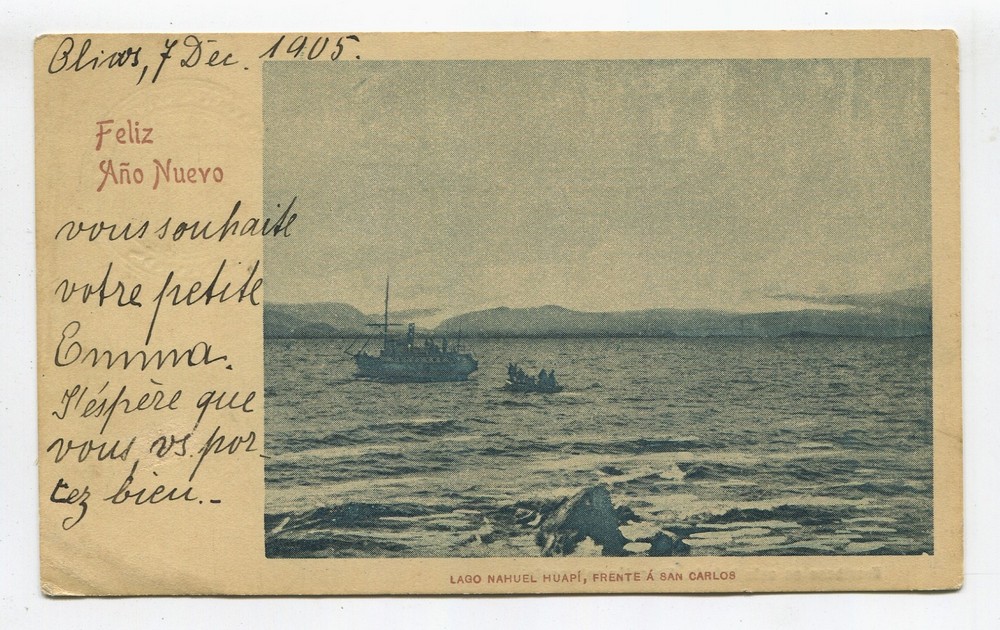 Olivos, 7 Déc. 1905.
Feliz
Año Nuevo
vous souhaite
votre petite
Emma.
J'éspère que
vous vs. por-
tez bien.-
LAGO NAHUEL HUAPÍ, FRENTE Á SAN CARLOS